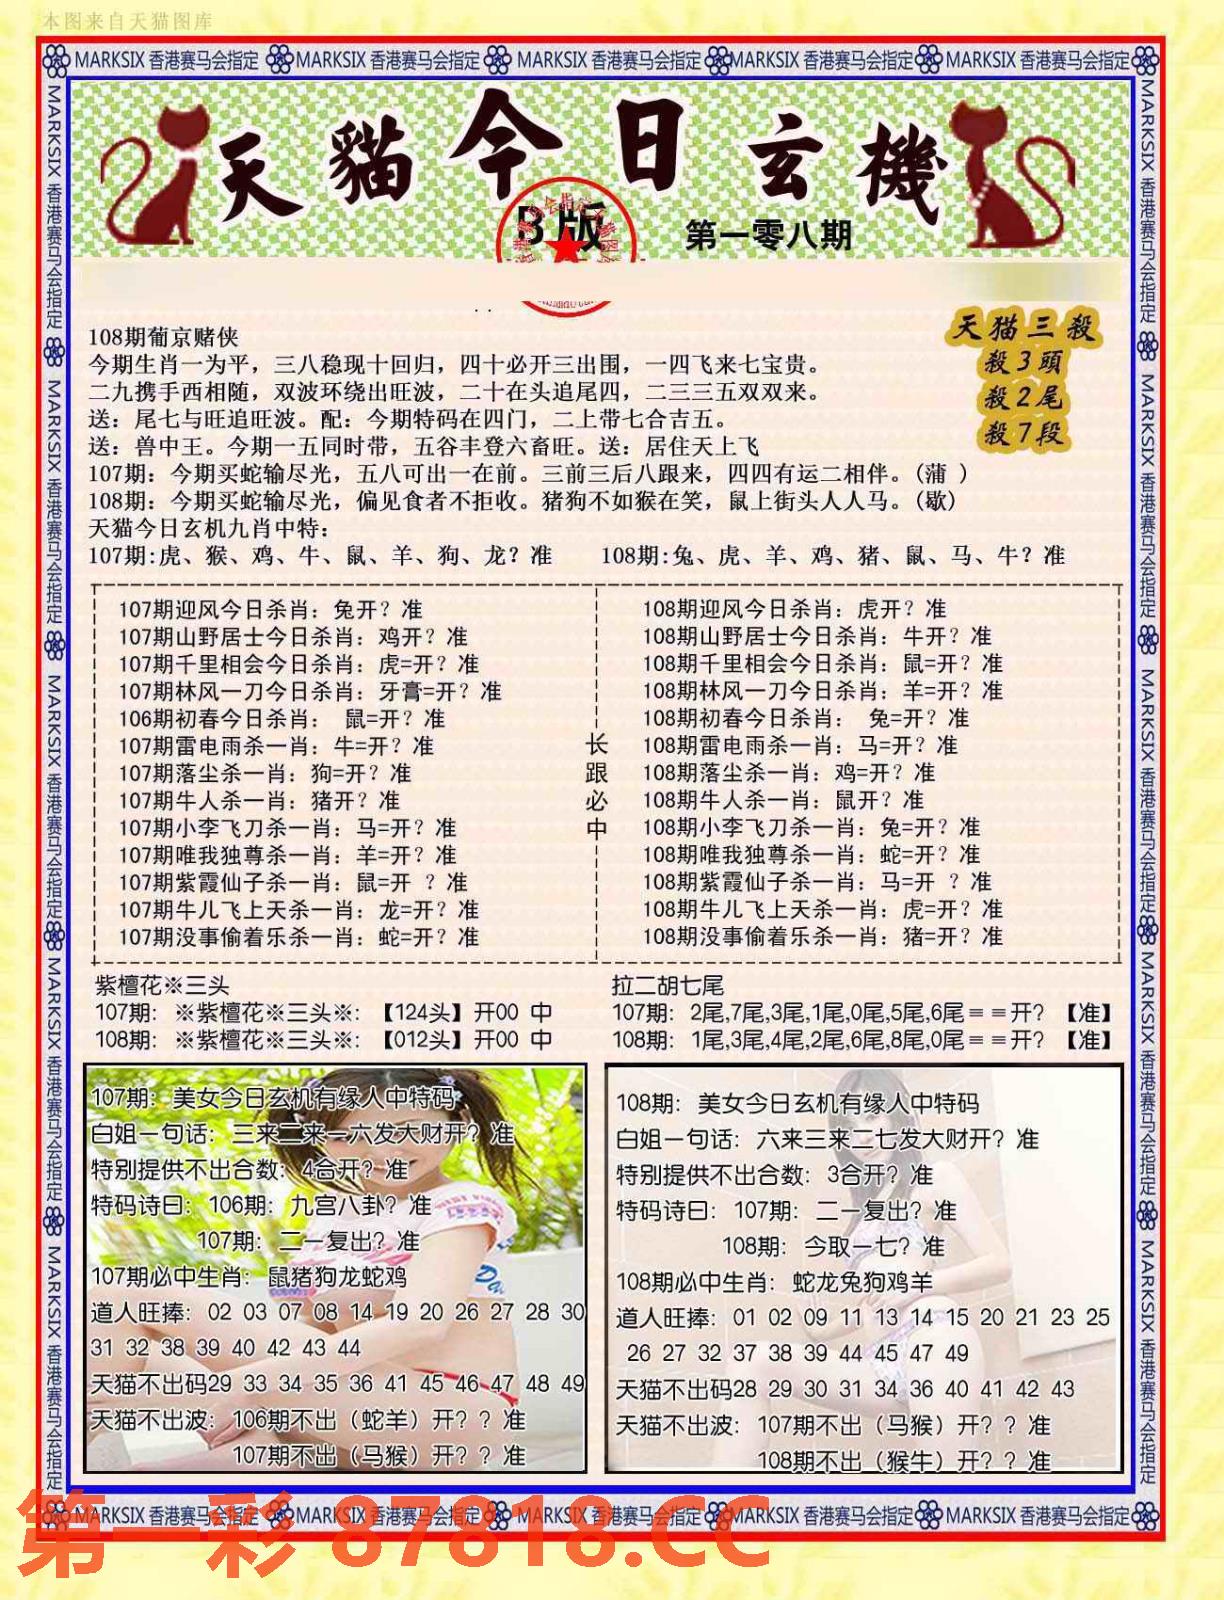 本图来自天猫图库
MARKSIX 香港赛马会指定 MARKSIX 香港赛马会指定 MARKSIX 香港赛马会指定 MARKSIX 香港赛马会指定 MARKSIX 香港赛马会指定
天貓今日玄機
B版
第一零八期
天猫三殺
殺3頭
殺2尾
殺7段
108期葡京赌侠
今期生肖一为平，三八稳现十回归，四十必开三出围，一四飞来七宝贵。
二九携手西相随，双波环绕出旺波，二十在头追尾四，二三三五双双来。
送：尾七与旺追旺波。配：今期特码在四门，二上带七合吉五。
送：兽中王。今期一五同时带，五谷丰登六畜旺。送：居住天上飞
107期：今期买蛇输尽光，五八可出一在前。三前三后八跟来，四四有运二相伴。(蒲 )
108期：今期买蛇输尽光，偏见食者不拒收。猪狗不如猴在笑，鼠上街头人人马。(歇)
天猫今日玄机九肖中特：
107期:虎、猴、鸡、牛、鼠、羊、狗、龙？准 108期:兔、虎、羊、鸡、猪、鼠、马、牛？准
107期迎风今日杀肖：兔开？准
107期山野居士今日杀肖：鸡开？准
107期千里相会今日杀肖：虎=开？准
107期林风一刀今日杀肖：牙膏=开？准
106期初春今日杀肖： 鼠=开？准
107期雷电雨杀一肖：牛=开？准
107期落尘杀一肖：狗=开？准
107期牛人杀一肖：猪开？准
107期小李飞刀杀一肖：马=开？准
107期唯我独尊杀一肖：羊=开？准
107期紫霞仙子杀一肖：鼠=开 ？准
107期牛儿飞上天杀一肖：龙=开？准
107期没事偷着乐杀一肖：蛇=开？准
长跟必中
108期迎风今日杀肖：虎开？准
108期山野居士今日杀肖：牛开？准
108期千里相会今日杀肖：鼠=开？准
108期林风一刀今日杀肖：羊=开？准
108期初春今日杀肖： 兔=开？准
108期雷电雨杀一肖：马=开？准
108期落尘杀一肖：鸡=开？准
108期牛人杀一肖：鼠开？准
108期小李飞刀杀一肖：兔=开？准
108期唯我独尊杀一肖：蛇=开？准
108期紫霞仙子杀一肖：马=开 ？准
108期牛儿飞上天杀一肖：虎=开？准
108期没事偷着乐杀一肖：猪=开？准
紫檀花※三头
107期： ※紫檀花※三头※: 【124头】开00 中
108期： ※紫檀花※三头※: 【012头】开00 中
拉二胡七尾
107期： 2尾,7尾,3尾,1尾,0尾,5尾,6尾＝＝开？ 【准】
108期： 1尾,3尾,4尾,2尾,6尾,8尾,0尾＝＝开？ 【准】
107期：美女今日玄机有缘人中特码
白姐一句话：三来二来一六发大财开？准
特别提供不出合数：4合开？准
特码诗曰：106期：九宫八卦？准
107期：二一复出？准
107期必中生肖：鼠猪狗龙蛇鸡
道人旺捧: 02 03 07 08 14 19 20 26 27 28 30
31 32 38 39 40 42 43 44
天猫不出码29 33 34 35 36 41 45 46 47 48 49
天猫不出波：106期不出（蛇羊）开？？准
107期不出（马猴）开？？准
108期：美女今日玄机有缘人中特码
白姐一句话：六来三来二七发大财开？准
特别提供不出合数：3合开？准
特码诗曰：107期：二一复出？准
108期：今取一七？准
108期必中生肖：蛇龙兔狗鸡羊
道人旺捧: 01 02 09 11 13 14 15 20 21 23 25
26 27 32 37 38 39 44 45 47 49
天猫不出码28 29 30 31 34 36 40 41 42 43
天猫不出波：107期不出（马猴）开？？准
108期不出（猴牛）开？？准
MARKSIX 香港赛马会指定 MARKSIX 香港赛马会指定 MARKSIX 香港赛马会指定 MARKSIX 香港赛马会指定 MARKSIX 香港赛马会指定
第一彩 87818.CC
MARKSIX 香港赛马会指定 MARKSIX 香港赛马会指定 MARKSIX 香港赛马会指定 MARKSIX 香港赛马会指定 MARKSIX 香港赛马会指定
MARKSIX 香港赛马会指定 MARKSIX 香港赛马会指定 MARKSIX 香港赛马会指定 MARKSIX 香港赛马会指定 MARKSIX 香港赛马会指定